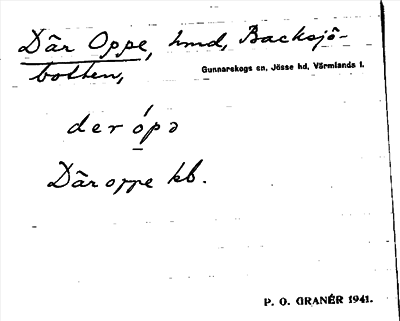 Där Oppe, hmd, Backsjö-
botten,
Gunnarskogs sn, Jösse hd, Värmlands l.
der ópə
Däroppe kb.
P. O. GRANÉR 1941.